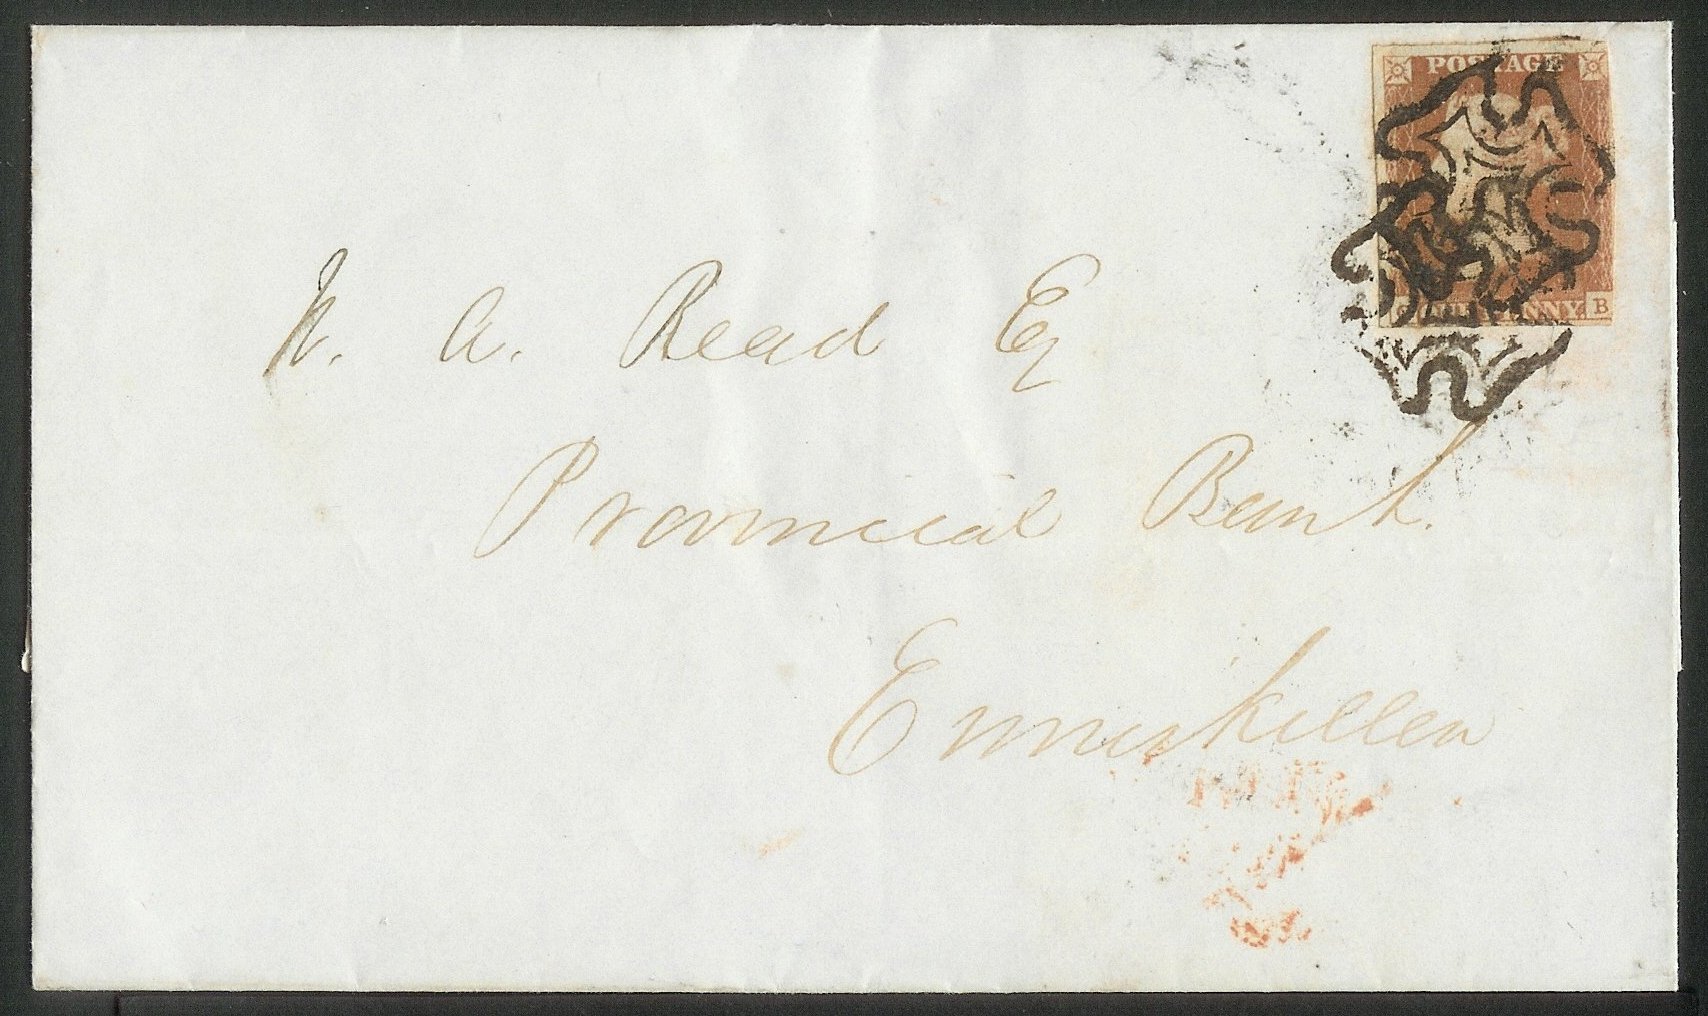 POSTAGE
B
A. Read Esq
Provincial Bank.
Enniskillen